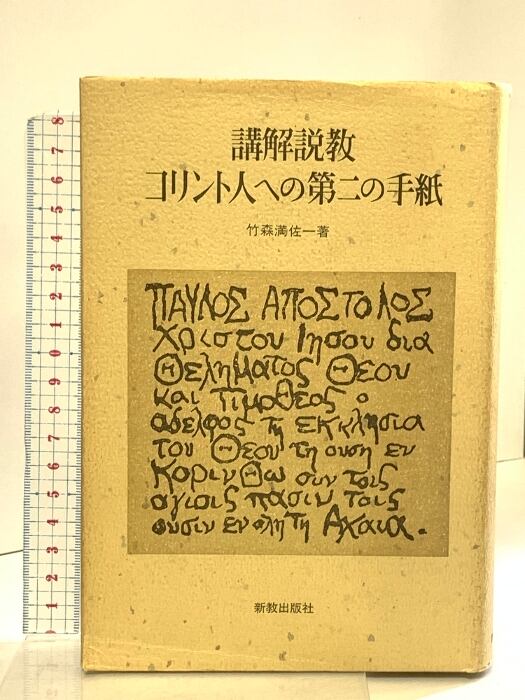 講解説教
コリント人への第二の手紙
竹森満佐一著
ΠΑΥΛΟΣ ΑΠΟΣΤΟλΟΣ
Χριστου Ιησου δια
Θεληματος Θεου
και Τιμοθεος ο
αδελφος τη εκκλησια
του Θεου τη ουση εν
Κορινθω συν τοις
αγιοις πασιν τοις
ουσιν εν ολη τη Αχαια.
新教出版社
8
7
6
5
4
3
2
1
0
9
8
7
6
5
4
3
2
1